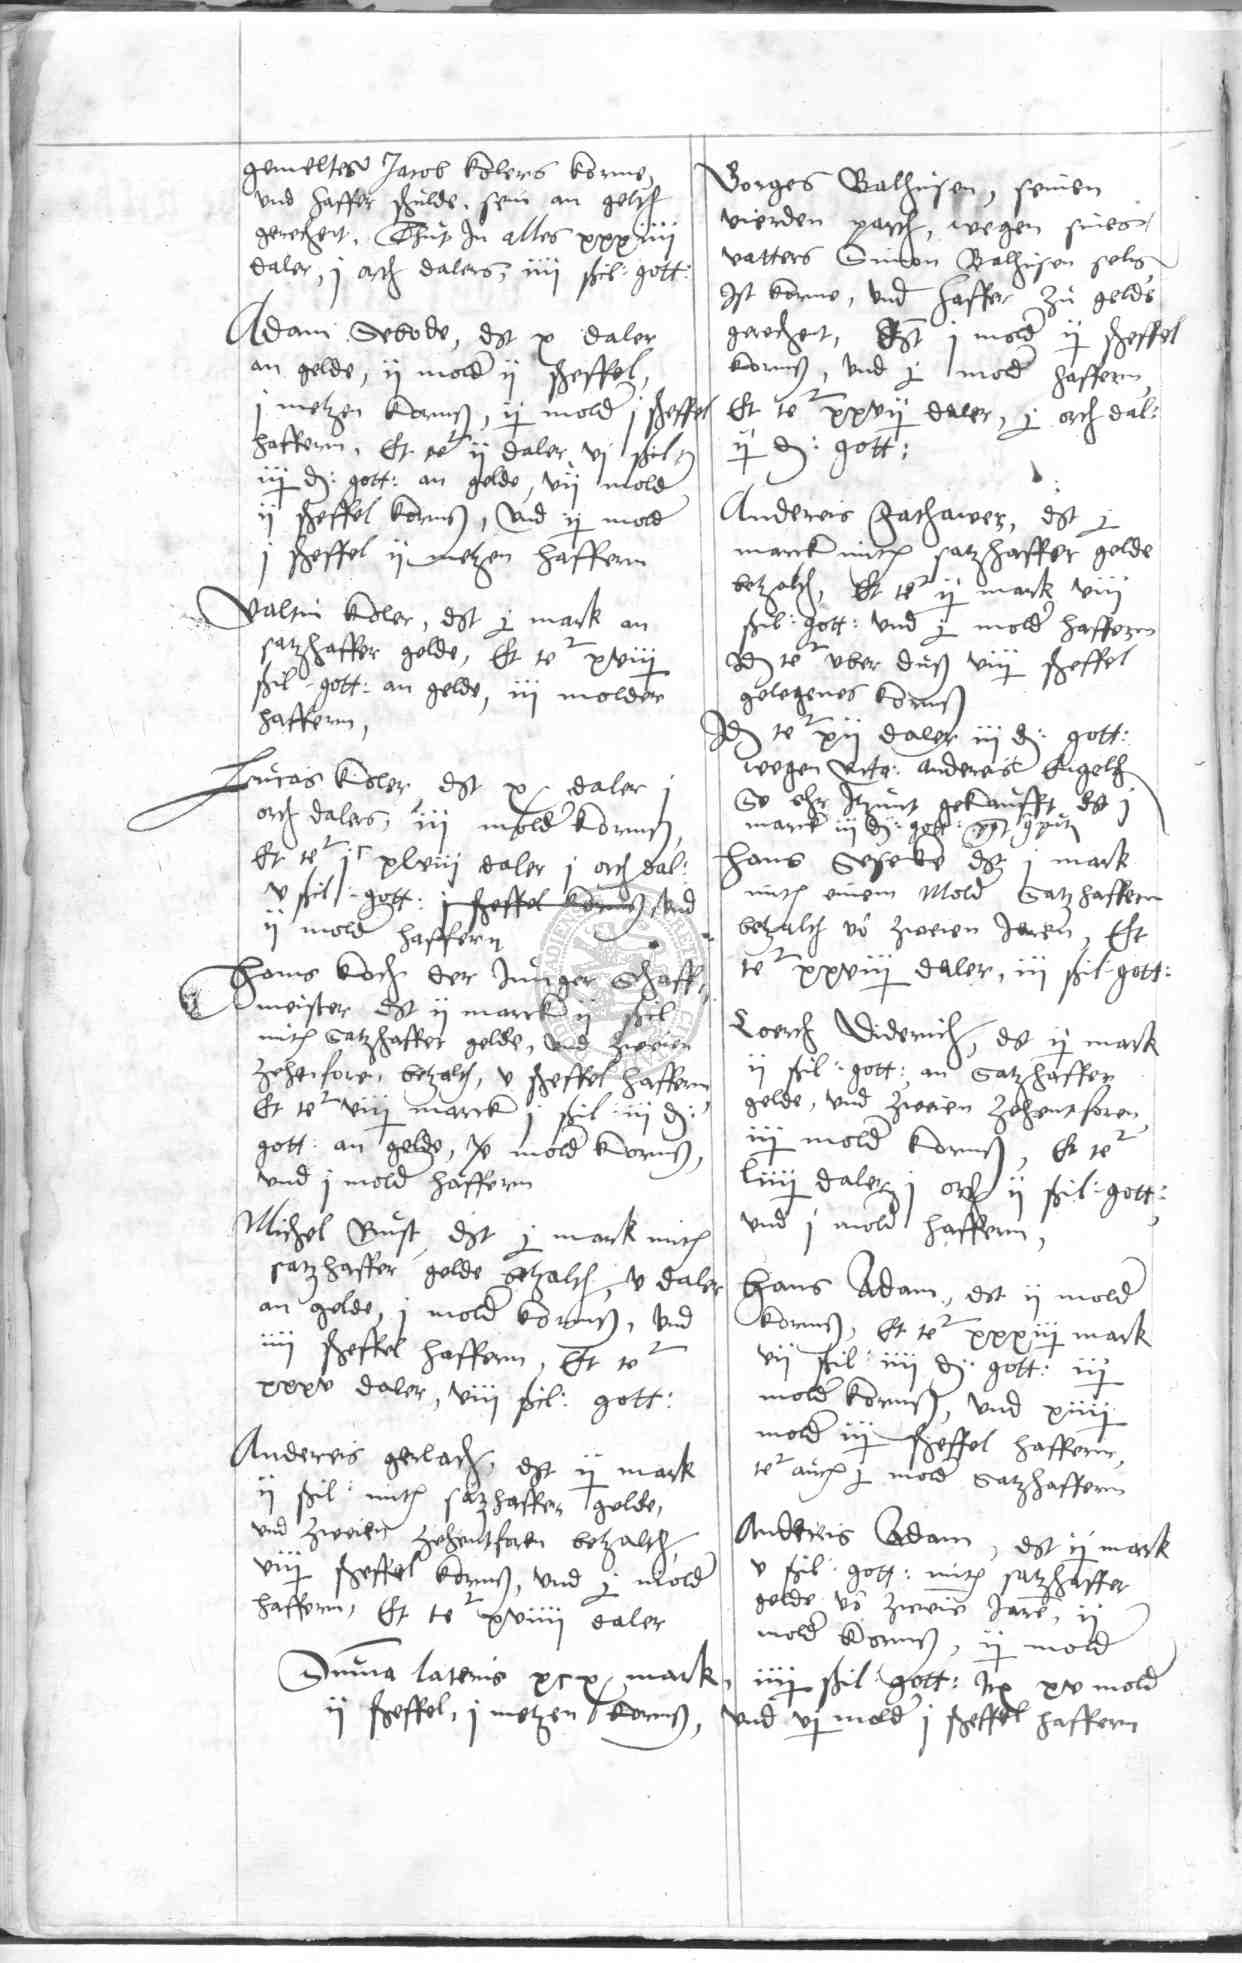 gemeltes Jacob Kolers korns,
vnd haffer schulde, sein an geltt
gerechent, Thut In alles xxxiiii
daler, j ortt dalers, iiii schil: gott:
Adam Sebode, dt x daler
an gelde, ij mold ij scheffel,
j metzen korns, ij mold j scheffel
haffern, Et te2 ij daler vj schil
iiij d: gott: an gelde, vij mold
ij scheffel korns, vnd ij mold
j scheffel ij metzen haffern
Valtin Koler, dt j mark an
satzhaffer gelde, Et te2 xviij
schil: gott: an gelde, iii molder
haffern,
Lucas Koler dt x daler j
ortt dalers, iii mold korns,
Et te2 jc xlviii daler j ort dal:
v schil: gott: j scheffel korns, vnd
ij mold haffern
Hans Koch der Junger Schaff
meister dt ij marck ij schil
mitt Satzhaffer gelde, vnd zweien
zehenforen betzalt, v scheffel haffern
Et te2 viij marck j schil iii d:
gott: an gelde, x mold korns,
vnd j mold haffern
Michel Rust dt j mark mitt
satzhaffer gelde betzalt, v daler
an gelde, j mold korns, vnd
iiii scheffel haffern, Et te2
xxxv daler, viii schil: gott:
Andereis gerlach, dt ij mark
ij schil: mitt satzhaffer gelde,
vnd zweien zehentforen betzaltt,
viij scheffel korns, vnd j mold
haffern, Et te2 xviiii daler
Borges Balhusen, seinen
vierden partt, wegen sines
vatters Simon Balhusen selig
Ist korns, vnd haffer zu gelde
gerechent, dt j mold ij scheffel
korns, vnd j mold haffern,
Et te2 xxvij daler, j ortt dal:
ij d: gott:
Andereis, dt j
marck mitt satzhaffer gelde
betzaltt, Et te2 ij mark viii
schil: gott: vnd j mold haffern
Id te2 vber dus viij scheffel
gelegenes korns
Id te2 xij daler iii d: gott:
wegen Andereis Engelh
So ehr Itzunt gekaufft, dt j
marck iii d: gott:
Hans Geseke dt j mark
mitt einem Mold Satzhaffern
betzaltt vo zweien Jaren, Et
te2 xxviij daler, iii schil: gott:
Coertt Diderich, dt ij mark
ij schil: gott: an Satzhaffer
gelde, vnd zweien zehentforen,
iij mold korns, Et te2
liiij daler j ort ij schil: gott:
vnd j mold haffern,
Hans Adam, dt ij mold
korns, Et te2 xxxiij mark
vij schil: iiii d: gott: iij
mold korns, vnd xiiij
mold iij scheffel haffern,
te2 auch j mold Satzhaffern
Andreis Adam, dt ij mark
v schil: gott: mitt satzhaffer
gelde vo zweie Jare, ij
mold korns, ij mold
Suma lateris xcx mark, iiij schil: gott: xv mold
ij scheffel, j metzen korns, vnd vj mold j scheffel haffern